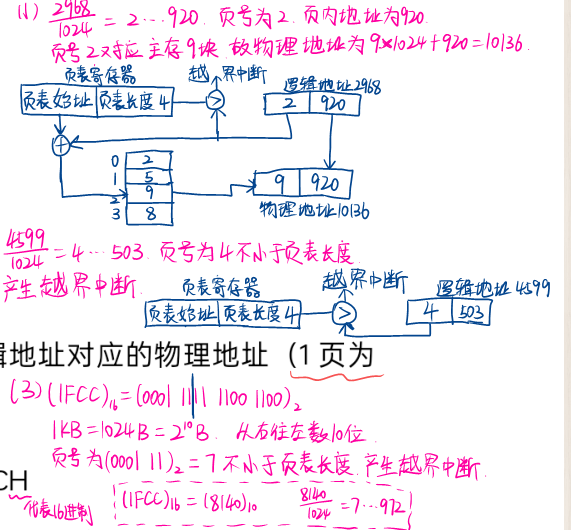 (1) 2968/1024 = 2…920. 页号为2. 页内地址为920.
页号2对应主存9块 故物理地址为9×1024+920=10136.
页表寄存器 越界中断 逻辑地址2968
页表始址 页表长度4 > 2 920
+
0 2
1 5
2 9
3 8
9 920
物理地址10136
4599/1024 = 4…503. 页号为4不小于页表长度
产生越界中断.
页表寄存器 越界中断 逻辑地址4599
页表始址 页表长度4 > 4 503
辑地址对应的物理地址 (1页为
(3)(1FCC)16=(0001 1111 1100 1100)2
1KB=1024B=2^10B. 从右往左数10位.
页号为(0001 11)2=7不小于页表长度.产生越界中断.
CH
代表16进制 (1FCC)16=(8140)10 8140/1024=7…972